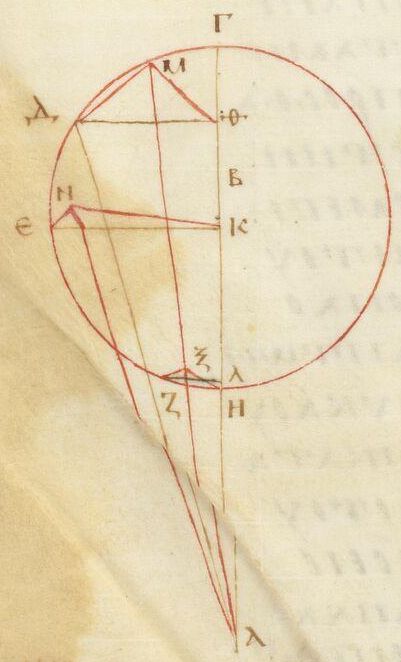 Γ
Μ
Δ Θ
Β
Ν
Ε Κ
ξ
Λ
Ζ Η
Α